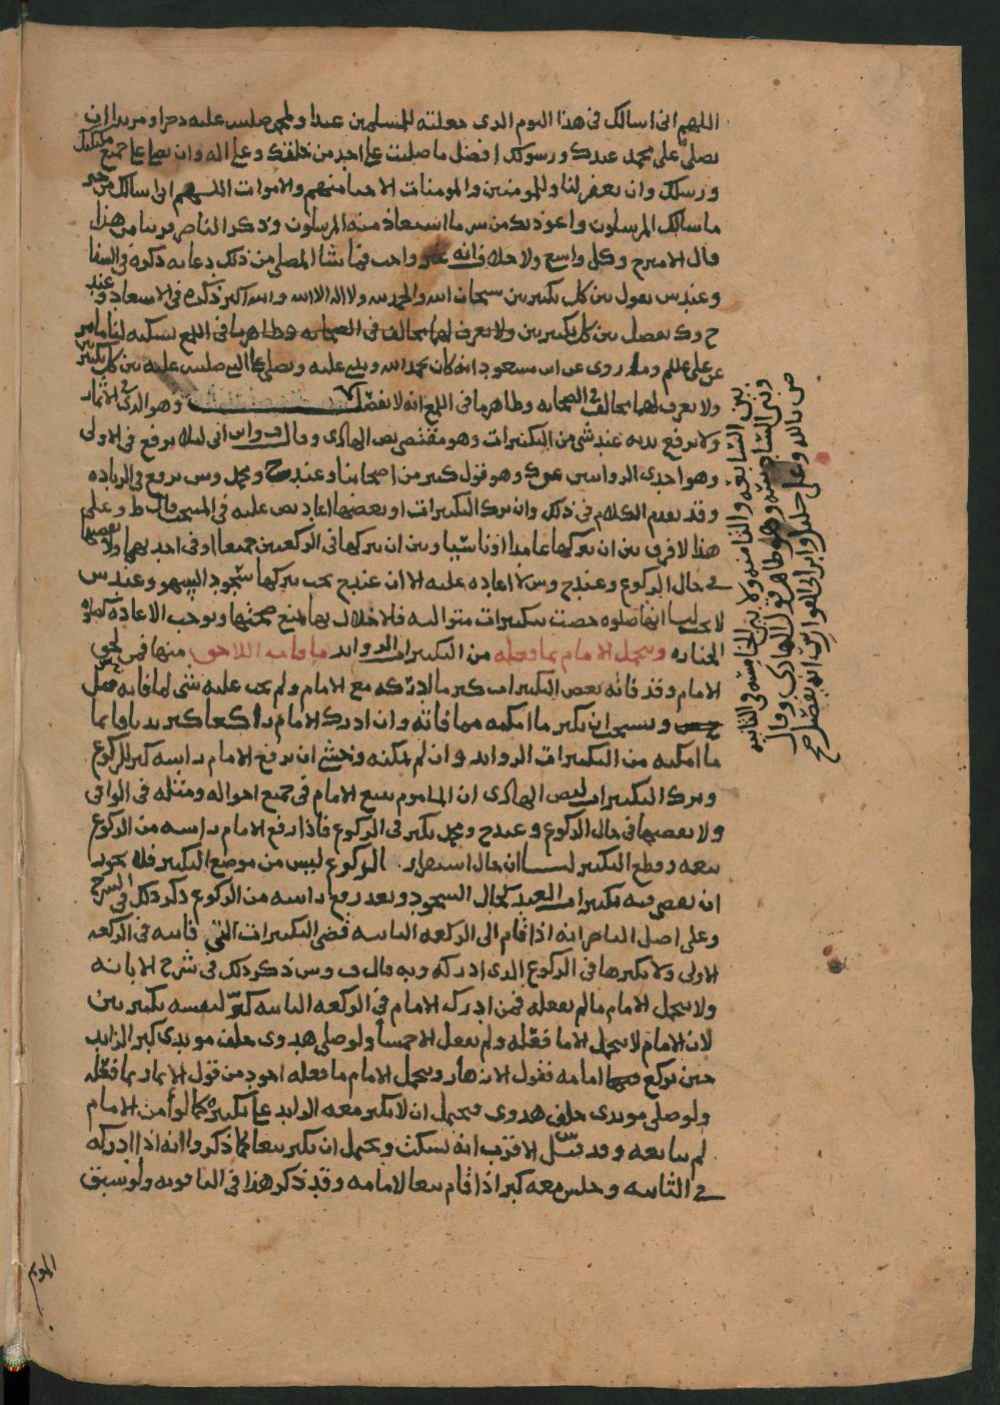 اللهم انى اسالك فى هذا اليوم الذى جعلته للمسلمين عيدا ولمحمد صلى الله عليه ذخرا ومزيدا ان
تصلى على محمد عبدك ورسولك افضل ما صليت على احد من خلقك وعلى اله وان تصلى على جميع ملائكتك
ورسلك وان تغفر لنا وللمومنين والمومنات الاحيا منهم والاموات اللهم انى اسالك من خير
ما سالك المرسلون واعوذ بك من شر ما استعاذ منه المرسلون وذكر الناصر قريبا من هذا
قال الامير ح وكل واسع ولا خلاف انه غير واجب فما شا المصلى من ذلك دعا به ذكره فى الشفا
وعند ش يقول بين كل تكبيرتين سبحان الله والحمد لله ولا اله الا الله والله اكبر ذكره فى الاستعاد وعند
ح وك يفصل بين كل تكبيرتين ولا يعرف لهما مخالف فى الصحابه وظاهر ما فى اللمع
عن على علم وما روى عن ابن مسعود انه كان يحمد الله ويثنى عليه ويصلى على النبى صلى الله عليه بين كل تكبيرتين
ولا يعرف لهما مخالف فى الصحابه وظاهر ما فى اللمع انه لا يفصل وهو الذى فى الاثمار
ولا يرفع يديه عند شى من التكبيرات وهو مقتضى نص الهادى وقال ف وابن ابى ليلا يرفع فى الاولى
وهو احدى الروايتين عن ك وهو قول كثير من اصحابنا وعند ح ومحمد وش يرفع فى الزياده
وقد تقدم الكلام فى ذلك وان ترك التكبيرات او بعضها اعاد نص عليه فى المنتخب قال ط وعلى
هذا لا فرق بين ان يتركها عامدا او ناسيا وبين ان يتركها فى الركعتين جميعا او فى احديهما ولا يقضيها
فى حال الركوع وعند ح وش لا اعاده عليه الا ان عند ح يجب بتركها سجود السهو وعند ش
لا يجب لنا انها صلوه خصت بتكبيرات متواليه فالاخلال بها يمنع صحتها ويوجب الاعاده كصلوه
الجنازه ويتحمل الامام ما فعله من التكبيرات الزوايد ما فاته اللاحق منها فمن لحق
الامام وقد فاته بعض التكبيرات كبر ما ادركه مع الامام ولم يجب عليه شى لما فاته قبل
ويستحب ان يكبر ما امكنه مما فاته وان ادرك الامام راكعا كبر
ما امكنه من التكبيرات الزوايد وان لم يمكنه وخشى ان يرفع الامام راسه كبر للركوع
وترك التكبيرات لنص الهادى ان الماموم يتبع الامام فى جميع احواله ومثله فى الوافى
ولا يقضيها فى حال الركوع وعند ح ومحمد يكبر فى الركوع فاذا رفع الامام راسه من الركوع
تبعه وقطع التكبير لنا ان حال استقرار الركوع ليس من موضع التكبير فلا يجوز
ان يقضى فيه تكبيرات العيد كحال السجود وبعد رفع راسه من الركوع ذكر ذلك فى الشرح
وعلى اصل الناصر انه اذا قام الى الركعه الثانيه قضى التكبيرات التى فاتته فى الركعه
الاولى ولا يكبرها فى الركوع الذى ادركه وبه قال ف وش ذكر ذلك فى شرح الابانه
ولا يتحمل الامام ما لم يفعله فمن ادرك الامام فى الركعه الثانيه كبر لنفسه تكبيرتين
لان الامام لا يتحمل الا ما فعله ولم يفعل الا خمسا ولو صلى هدوى خلف مويدى كبر الزايد
حين يركع امامه فقول الازهار ويتحمل الامام ما فعله اجود من قول الاثمار بما فعله
ولو صلى مويدى خلف هدوى فيحتمل ان لا يكبر معه الزايد على تكبيره كما لو أمن الامام
لم يتابعه وقد قيل الاقرب انه يسكت ويحتمل ان يكبر تبعا كما ذكروا انه اذا ادركه
فى الثانيه وجلس معه كبر اذا قام تبعا لامامه وقد ذكر هذا فى الياقوته ولو سبق
بين السابعه والثامنه ولا بين الخامسه فى الثانيه
وبين السادسه وهو ظاهر قول الهادى وقال
ص بالله وعلى خليل وابى الفوارس انه يفصل صح
الموتم